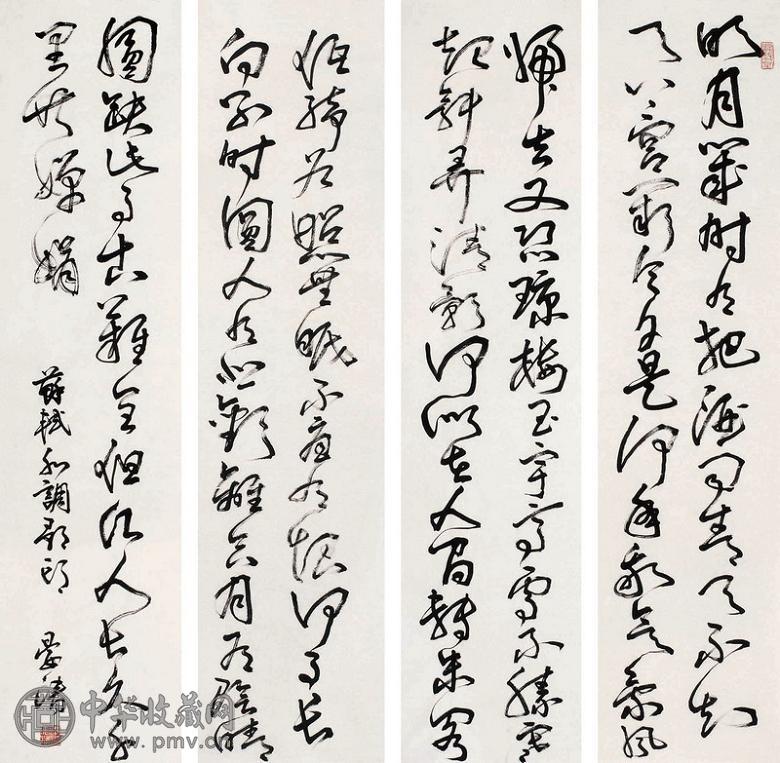 明月幾時有把酒问青天不知
天上宫闕今夕是何年我欲乘風
歸去又恐瓊樓玉宇高處不勝寒
起舞弄清影何似在人間轉朱閣
低綺户照無眠不應有恨何事長
向别時圓人有悲歡離合月有陰晴
圓缺此事古難全但願人長久千
里共嬋娟
蘇軾水調歌頭
中华收藏网
www.pmv.cn